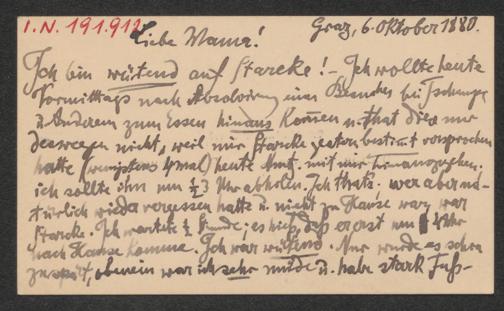 I.N. 191.912
Graz, 6. Oktober 1880.
Liebe Mama!
Ich bin wütend auf Starcke! – Ich wollte heute
Vormittags nach Absolvirung eines Besuches bei
u. Anderem zum Essen hinaus kommen u. that dies nur
deswegen nicht, weil mir Starcke gestern bestimmt versprochen
hatte (wenigstens 4 mal) heute Nm. mit mir hinauszugehen.
ich sollte ihn um ½3 Uhr abholen. Ich that's. wer aber na-
türlich wieder vergessen hatte u. nicht zu Hause war, war
Starcke. Ich wartete ½ Stunde; es hieß, daß er erst um 4 Uhr
nach Hause komme. Ich war wütend. Nur wurde es schon
zu spät, obenein war ich sehr müde u. habe stark Fuß-